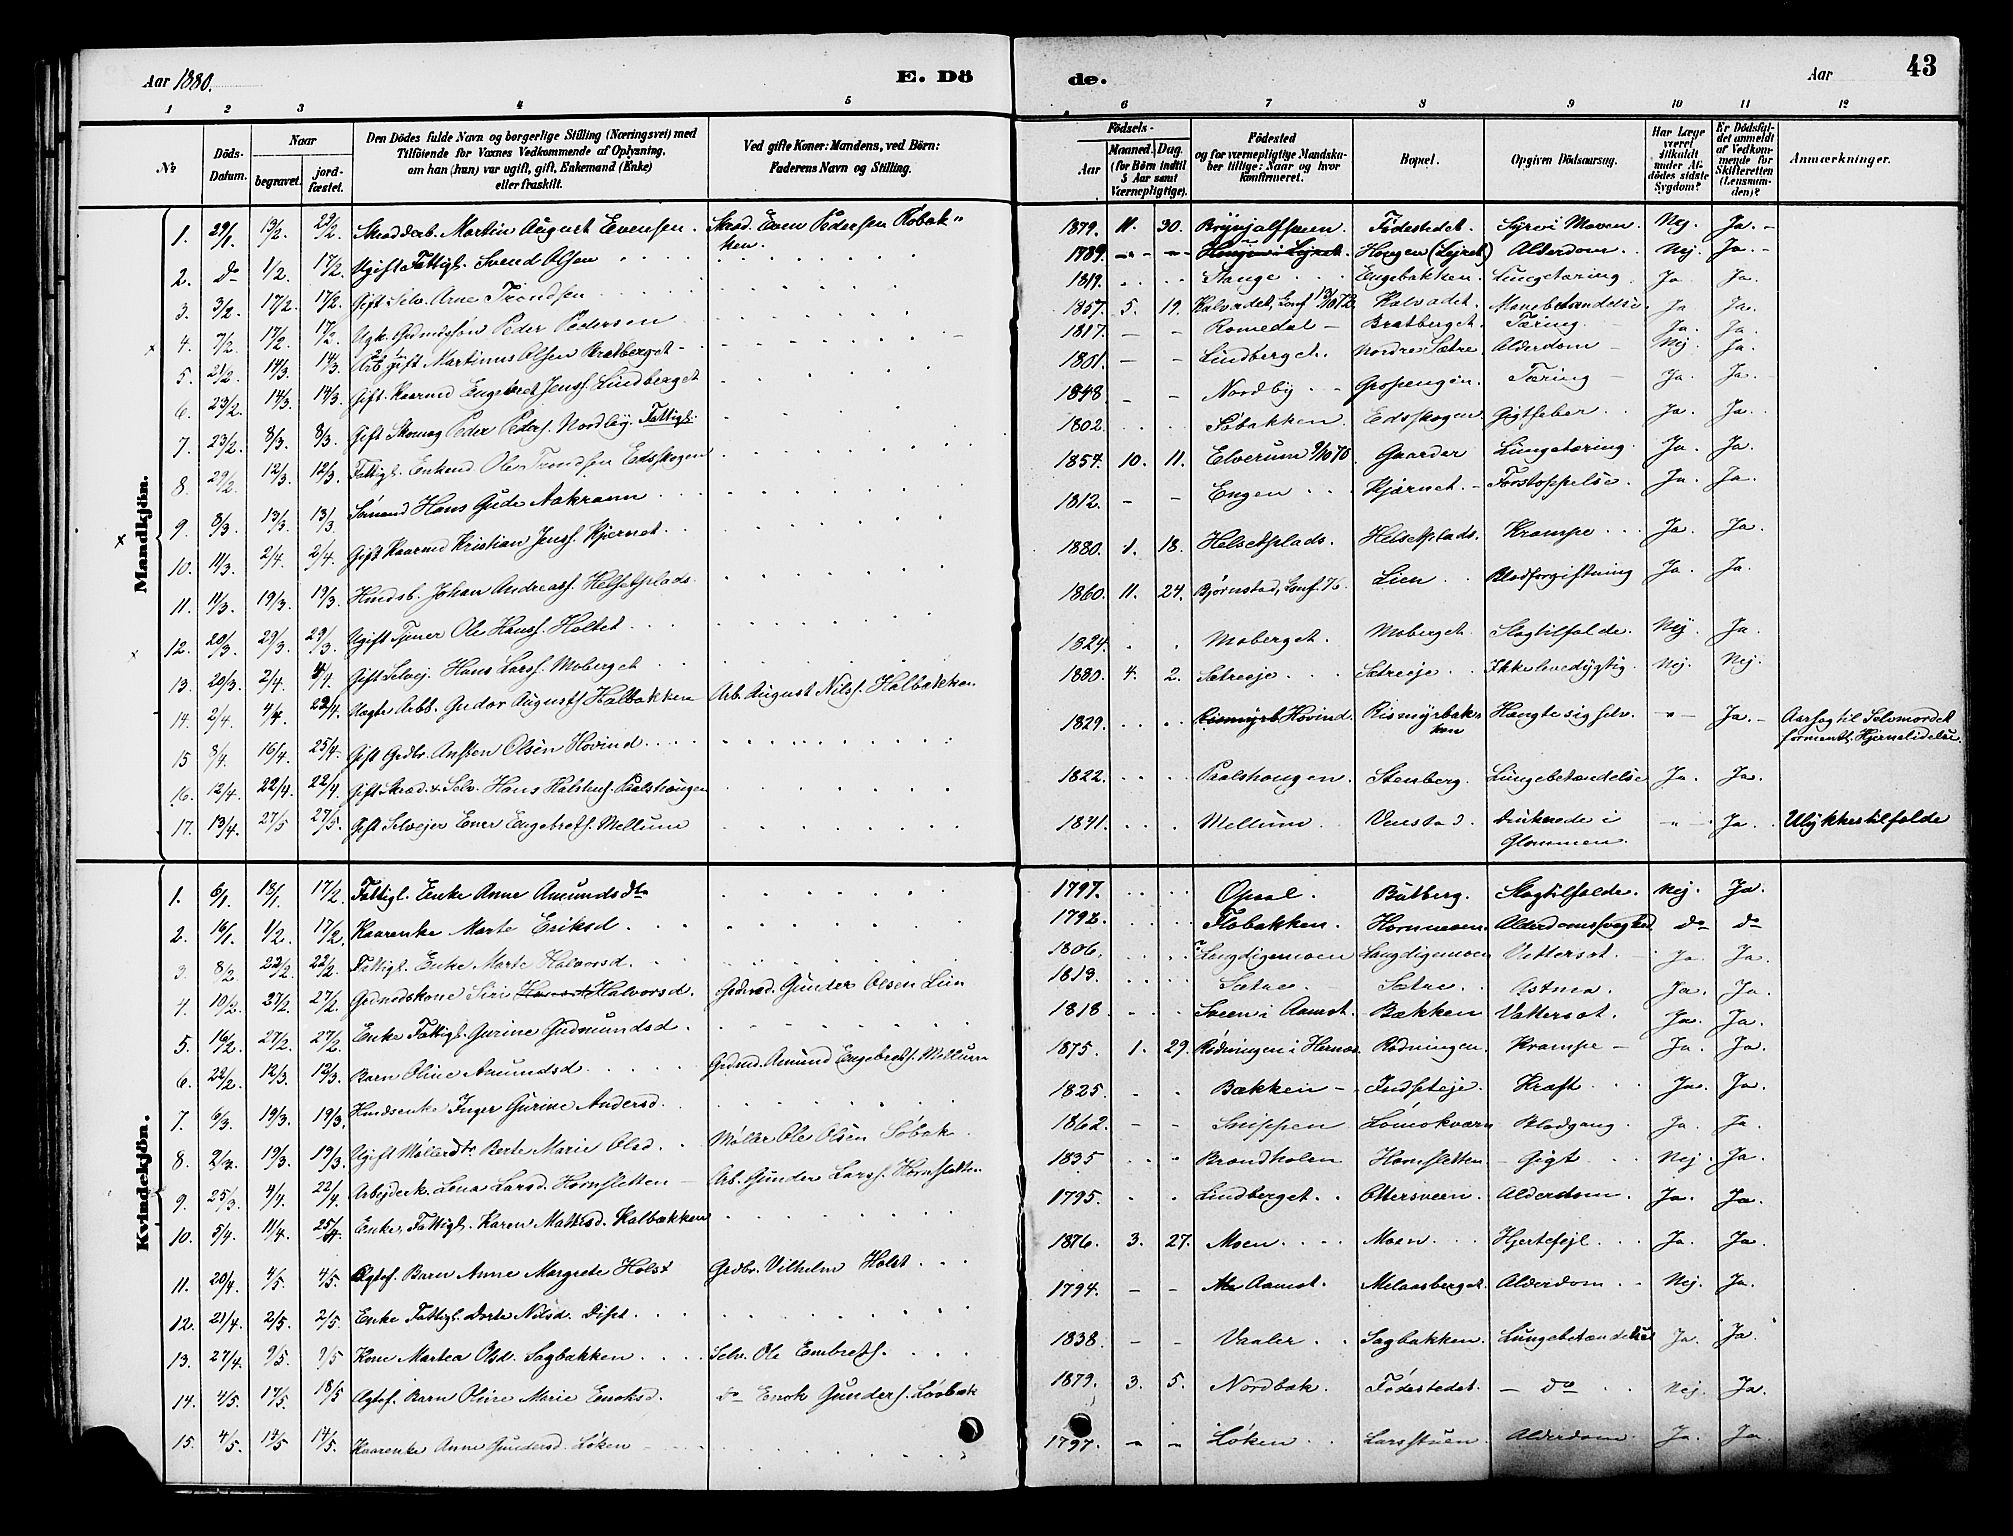 Aar 1880. E. Dö
de. Aar 43
1 2 3 4 5 6 7 8 9 10 11 12
No
Döds-Datum.
Naar begravet. jordfæstet.
Den Dödes fulde Navn og borgerlige Stilling (Næringsvei) med Tilföiende for Voxnes Vedkommende af Oplysning, om han (hun) var ugift, gift, Enkemand (Enke) eller fraskilt.
Ved gifte Koner: Mandens, ved Börn: Faderens Navn og Stilling.
Födsels- Aar Maaned. Dag. (for Börn indtil 5 Aar samt Værnepligtige).
Födested og for værnepligtige Mandskaber tillige: Naar og hvor konfirmeret.
Bopæl.
Opgiven Dödsaarsag.
Har Læge været tilkaldt under Afdödes sidste Sygdom?
Er Dödsfaldet anmeldt af Vedkommende for Skifteretten (Lensmanden)?
Anmærkninger.
Mandkjön.
1. 29/1. 13/2. 29/2. Martin August Evensen. Skrad. Even Pedersen 1879. 11. 30. Fødestedet. Nej. Ja.
2. do 1/2. 17/2. Ugift Fattigl. Svend Olsen 1789. Hougen (Lejret) Alderdom. Nej. Ja.
3. 3/2. 17/2. 17/2. Gift Selv. Arne Trondsen 1819. Stange Engebakken. Lungetæring. Ja. Ja.
4. 7/2. 17/2. 17/2. Peder Pedersen 1857. 5. 19. Kalvadet. Ja. Ja.
5. 21/2. 14/3. 14/3. Arb. gift Martinus Olsen Bratberget 1817. Romedal Bratberget. Tæring Ja. Ja.
6. 23/2. 14/3. 14/3. Gift. Kaarmd Engebret Jenss. Lindberget 1801. Lindberget. Nordre Sætre. Alderdom Nej. Ja.
7. 23/2. 8/3. 8/3. Gift Skomag Peder Peders. Nordby. Fattigl. 1848. Nordby Tæring Ja. Ja.
8. 29/2. 12/3. 12/3. Fattigl. Enkmd Ole Trondsen Edsskogen 1802. Søbakken Edsskogen Gigtfeber Ja. Ja.
9. 8/3. 13/3. 13/3. Sømand Hans Gude Aakrann 1854. 10. 11. Elverum Gaarder Lungetæring. Ja. Ja.
10. 11/3. 2/4. 2/4. Gift Kaarmd Kristian Jenss. Kjernet. 1812. Engen Kjærnet. Forstoppelse Ja. Ja.
11. 11/3. 19/3. 19/3. Johan Andreass. Helsetplads. 1880. 1. 18. Helsetplads. Helsetplads. Krampe Ja. Ja.
12. 20/3. 29/3. 29/3. Ugift Tjener Ole Hanss. Holtet. 1860. 11. 24. Bjørnstad, Lien Blodforgiftning Ja. Ja.
13. 20/3. 2/4. 4/4. Gift Selvej. Hans Larss. Moberget 1824. Moberget. Moberget. Slagtilfælde. Nej. Ja.
14. 2/4. 4/4. 22/4. Halbakken Arb. August Nilss. Halbakken 1880. 4. 2. Sætreeje Sætreeje Ikke levedygtig. Nej. Nej.
15 8/4. 16/4. 25/4. Gift Gdbr. Olsen Hovind 1829. Hovind. Rismyrbakken Hængte sig selv. Ja. Aarsag til Selvmordet forment. Hjernelidelse.
16. 12/4. 22/4. 22/4. Gift Skræd. & Selv. Hans Paalshougen 1822. Paalshougen. Stenberg. Lungebetændelse Ja. Ja.
17. 13/4. 27/5 27/5. Gift Selvejer Ener Engebrets. Mellum 1841. Mellum. Druknede i Glommen. Ja. Ulykkestilfælde
Kvindekjön.
1. 6/1. 18/1. 17/2. Fattigl. Enke Anne Amundsdtr 1797. Opsal. Butberg. Slagtilfælde. Nej. Ja.
2. 16/1. 1/2. 17/2 Kaarenke Marte Eriksd 1798. Flobakken. Hornmoen. Alderdomssvaghed do do
3. 8/2. 22/2. 22/2. Fattigl. Enke Marte Halvorsd. 1806. Langdigemoen Langdigemoen Vattersot. Ja. Ja.
4. 10/2. 27/2. 27/2. Gdmdskone Siri Halvorsd. Gdmd. Gunder Olsen Lien 1813. Sætre. Sætre. Astma. Ja. Ja.
5. 16/2. 27/2. 27/2. Enke Fattigl. Gurine Gudmundsd. 1818. Sveen i Aamot. Bækken Vattersot. Ja. Ja.
6. 22/2. 12/3. 12/3. Barn Oline Amundsd Gdmd. Amund Engebrets. Mellum 1875. 1. 29. Rødningen. Krampe Ja. Ja.
7. 6/3. 19/3. 19/3. Inger Gurine Andersd. 1825. Bækken Indseteje. Kræft Ja. Ja.
8. 19/3. 19/3. Ugift Møllerdtr Berte Marie Olsd. Møller Ole Olsen Søbak. 1862. Snippen Blodgang. Ja. Ja.
9. 25/3. 4/4. 22/4. Arbejderk. Lena Larsd. Hornsletten Arb. Gunder Larss. Hornsletten 1835 Hornsletten Gigt Nej. Ja.
10. 5/4. 11/4. 25/4. Enke, Fattigl. Karen Halbækken 1795. Lindberget. Ottersveen. Alderdom. Ja. Ja.
11. 20/4. 4/5. 4/5. Ægtef. Barn Anne Margrete Holst Gdbr. Vilhelm Holst 1876. 3. 27. Moen. Moen Hjertefejl. Ja. Ja.
12. 21/4. 2/5. 2/5. Enke Fattigl. Dorte Nilsd. Diset 1794. Aamot. Melaasberget. Alderdom Nej. Ja.
13. 27/4. 9/5. 9/5 Kone Martea Olsd. Sagbakken. Selv. Ole Embrets. 1838. Vaaler Sagbakken. Lungebetændelse Ja. Ja.
14. 4/5. 17/5. 18/5 Ægtef. Barn Oline Marie Enoksd. do Enok Gunders. 1879. 3. 5. Nordbak. Fødestedet. do Nej. Ja.
15. 4/5. 14/5. 14/5. Kaarenke Anne Gundersd. Løken 1797. Løken Larsstuen. Alderdom. Ja. Ja